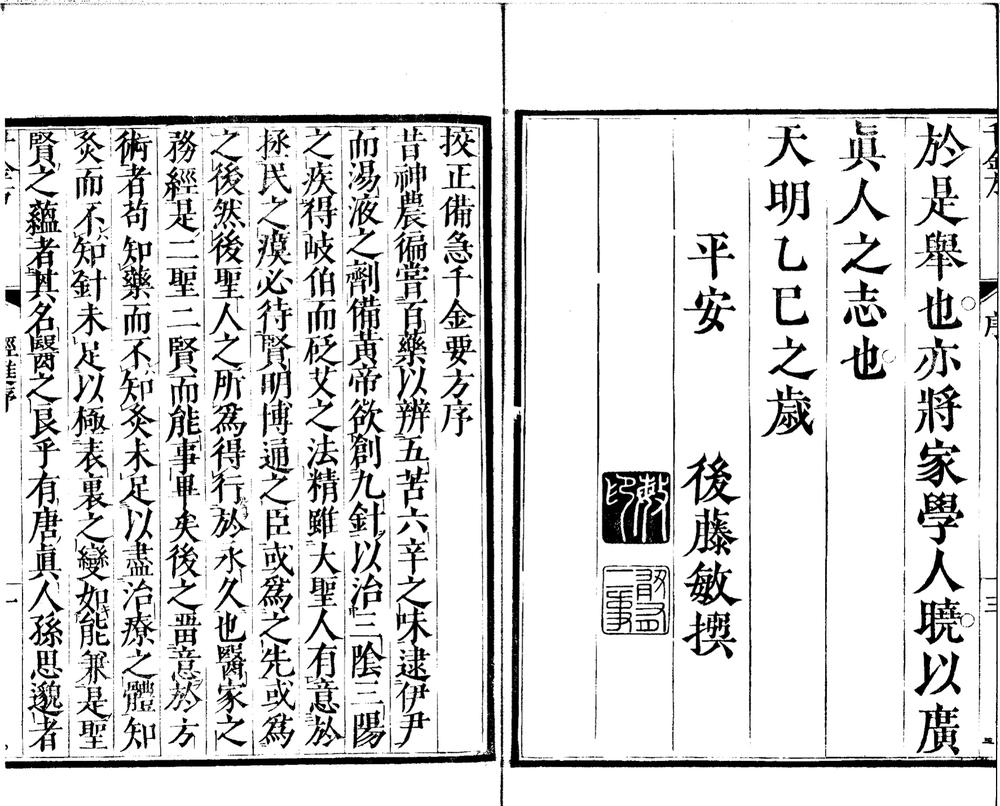 於是舉也亦將家學人曉以廣
眞人之志也
天明乙巳之歲
平安　後藤敏撰
敏印
挍正備急千金要方序
昔神農徧嘗百藥以辨五苦六辛之味逮伊尹
而湯液之劑備黃帝欲創九針以治三陰三陽
之疾得岐伯而砭艾之法精雖大聖人有意於
拯民之瘼必待賢明博通之臣或爲之先或爲
之後然後聖人之所爲得行於永久也醫家之
務經是二聖二賢而能事畢矣後之畱意於方
術者苟知藥而不知灸未足以盡治療之體知
灸而不知針未足以極表裏之變如能兼是聖
賢之蘊者其名醫之良乎有唐眞人孫思邈者